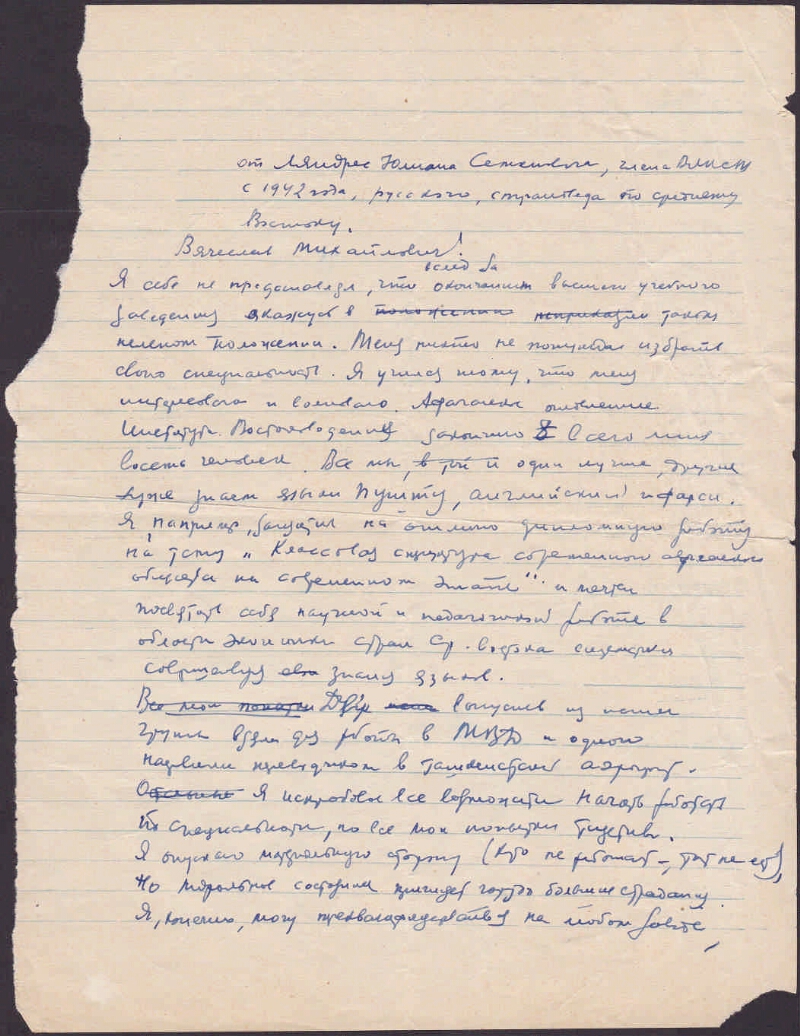 от Ляндрес Юлиана Семеновича, члена ВЛКСМ
с 1942 года, русского, страноведа по среднему
Востоку.
Вячеслав Михайлович!
Я себе не представлял, что вслед за окончанием высшего учебного
заведения окажусь в положении таком
нелепом положении. Меня никто не понуждал избрать
свою специальность. Я учился тому, что меня
интересовало и волновало. Афганское отделение
Института Востоковедения закончило 8 всего лишь
восемь человек. Все мы, один лучше, другие
хуже знаем языки Пушту, английский и фарси.
Я, например, защитил на отлично дипломную работу
на тему „Классовая структура современного афганского
общества на современном этапе" и мечтал
посвятить себя научной и педагогической работе в
области экономики стран Ср. востока
совершенствуя знания языков.
Все мои попытки Двух выпускников из нашей
группы взяли для работы в МВД и одного
направили переводчиком в ташкентский аэропорт.
Остальные Я испробовал все возможности начать работать
по специальности, но все мои попытки тщетны.
Я опускаю материальную сторону (кто не работает – тот не ест),
но моральное состояние приносит гораздо большие страдания.
Я, конечно, могу на любом заводе,